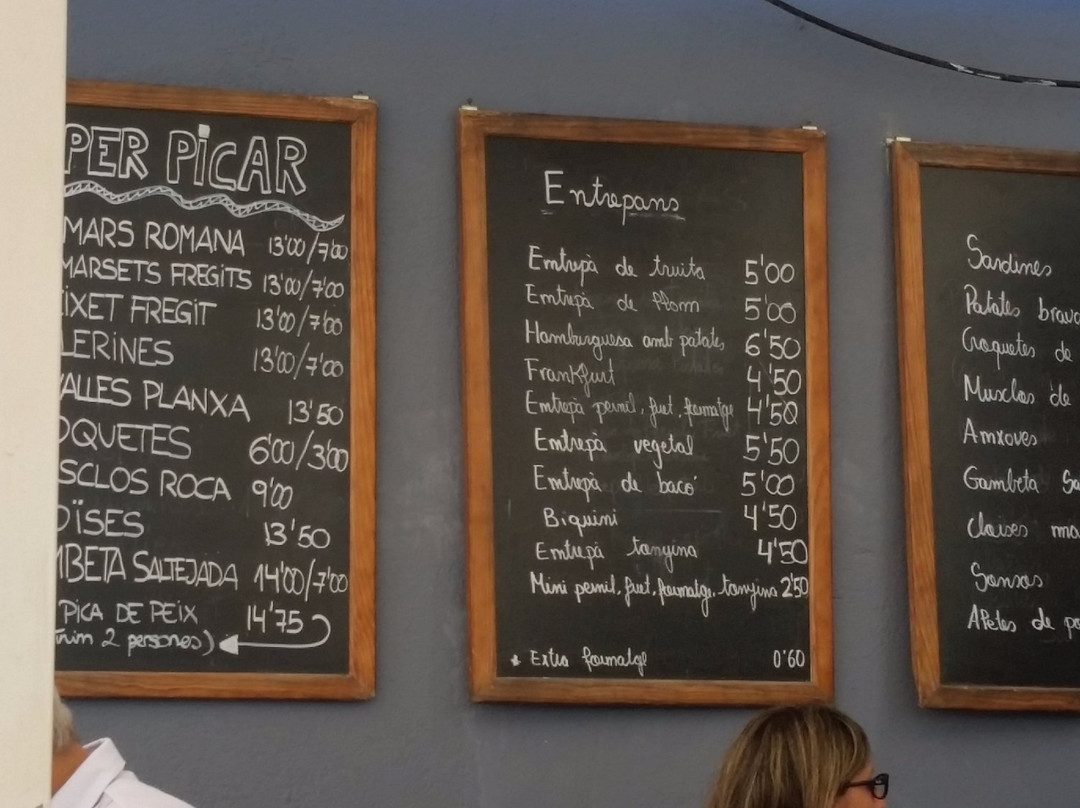 PER PICAR
MARS ROMANA 13'00/7'00
MARSETS FREGITS 13'00/7'00
IXET FREGIT 13'00/7'00
LERINES 13'00/7'00
ALLES PLANXA 13'50
OQUETES 6'00/3'00
SCLOS ROCA 9'00
OÏSES 13'50
MBETA SALTEJADA 14'00/7'00
PICA DE PEIX 14'75
2 persones)
Entrepans
Entrepà de truita 5'00
Entrepà de llom 5'00
Hamburguesa amb patates 6'50
Frankfurt 4'50
Entrepà pernil, fuet, formatge 4'50
Entrepà vegetal 5'50
Entrepà de bacó 5'00
Biquini 4'50
Entrepà tonyina 4'50
Mini pernil, fuet, formatge, tonyina 2'50
* Extra formatge 0'60
Sardines
Patates brava
Croquetes de
Musclos de
Anxoves
Gambeta Sa
Cloïsses ma
Sonsos
Aletes de po